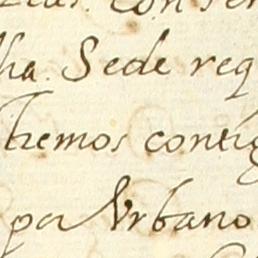 con
ha. Sede req
tremos contig
por Vrbano